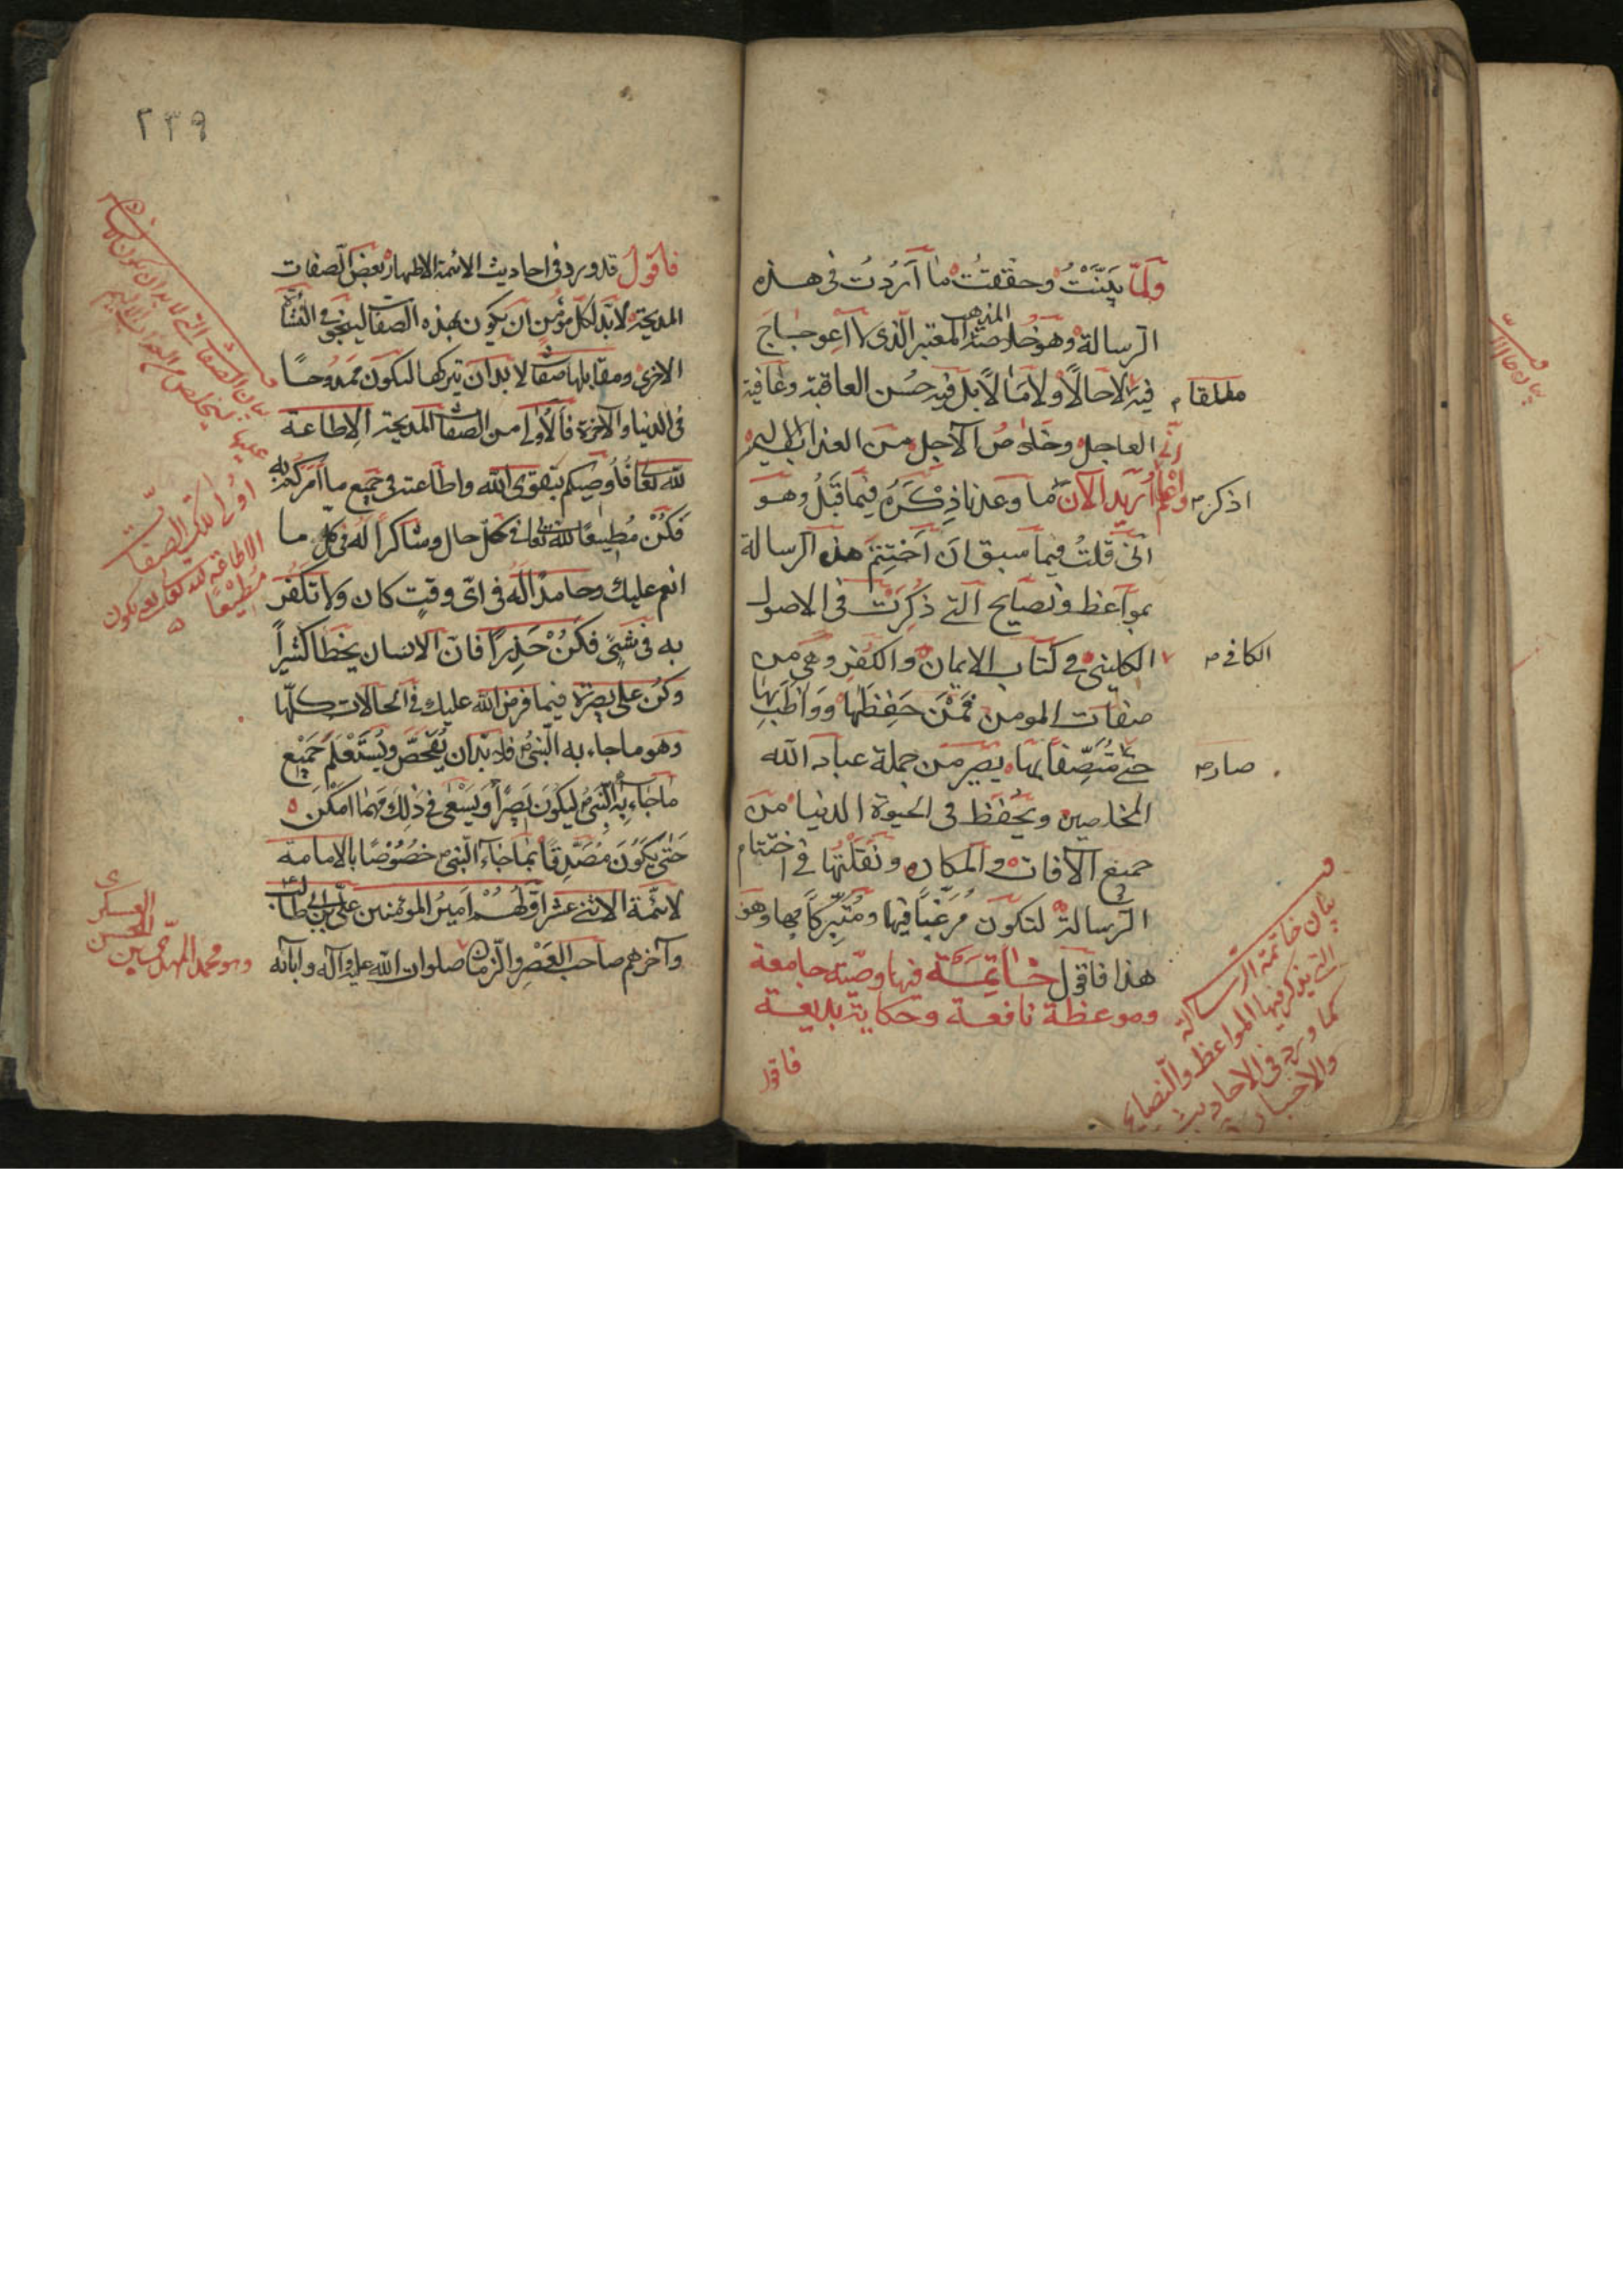 ولما بينت وحققت ما اردت فى هذه
الرسالة وهو خلاصة المذهب المعتبر الذى لا اعوجاج
فيه لا حالا ولا مآلا بل فيه حسن العاقبة وعافية
مطلقا
العاجل وخلاص الآجل من العذاب الاليم
واعلم انى اريد الآن ما وعدنا ذكره فيما قبل وهو
اذكر
انى قلت فيما سبق ان اختتم هذه الرسالة
بمواعظ ونصايح التى ذكرت فى الاصول
الكلينى فى كتاب الايمان والكفر وهى من
الكافى
صفات المومن فمن حفظها وواظب بها
حتى متصفا بها يصير من جملة عباد الله
صار
المخلصين ويحفظ فى الحيوة الدنيا من
جميع الآفات والمكاره ونقلتها فى اختتام
الرسالة لتكون مرغبا فيها ومتبركا بها وهو
هذا فاقول خاتمة فيها وصية جامعة
وموعظة نافعة وحكاية بديعة
بيان خاتمة الرسالة
التى يذكر فيها المواعظ والنصايح
كما ورد فى الاحاديث
والاخبار
فاقول
٢٣٩
فاقول قد ورد فى احاديث الائمة الاطهار بعض الصفات
المديحة لابد لكل مؤمن ان يكون بهذه الصفات لينجى فى النشأة
الاخرى ومقابلها صفات لابد ان يتركها ليكون ممدوحا
فى الدنيا والآخرة فالاولى من الصفات المديحة الاطاعة
لله تعالى فاوصيكم بتقوى الله واطاعته فى جميع ما امركم به
فكن مطيعا لله تعالى فى كل حال وشاكرا له فى كل ما
انعم عليك وحامدا له فى اى وقت كان ولا تكفر
به فى شئ فكن حذرا فان الانسان يخطا كثيرا
وكن على بصيرة فيما فرض الله عليك فى الحالات كلها
وهو ما جاء به النبى فلابد ان يفحص ويستعلم جميع
ما جاء به النبى ليكون بصيرا ويسعى فى ذلك مهما امكن
حتى يكون مصدقا بما جاء النبى خصوصا بالامامة
لائمة الاثنى عشر اولهم امير المؤمنين على بن ابى طالب
وآخرهم صاحب العصر والزمان صلوات الله عليه وآله وآبائه
بيان الصفات التى لابد ان يكون
عليها
اولى تلك الصفات
الاطاعة لله تعالى يعنى يكون
مطيعا
العسكرى
الحسن
وهو محمد المهدى بن